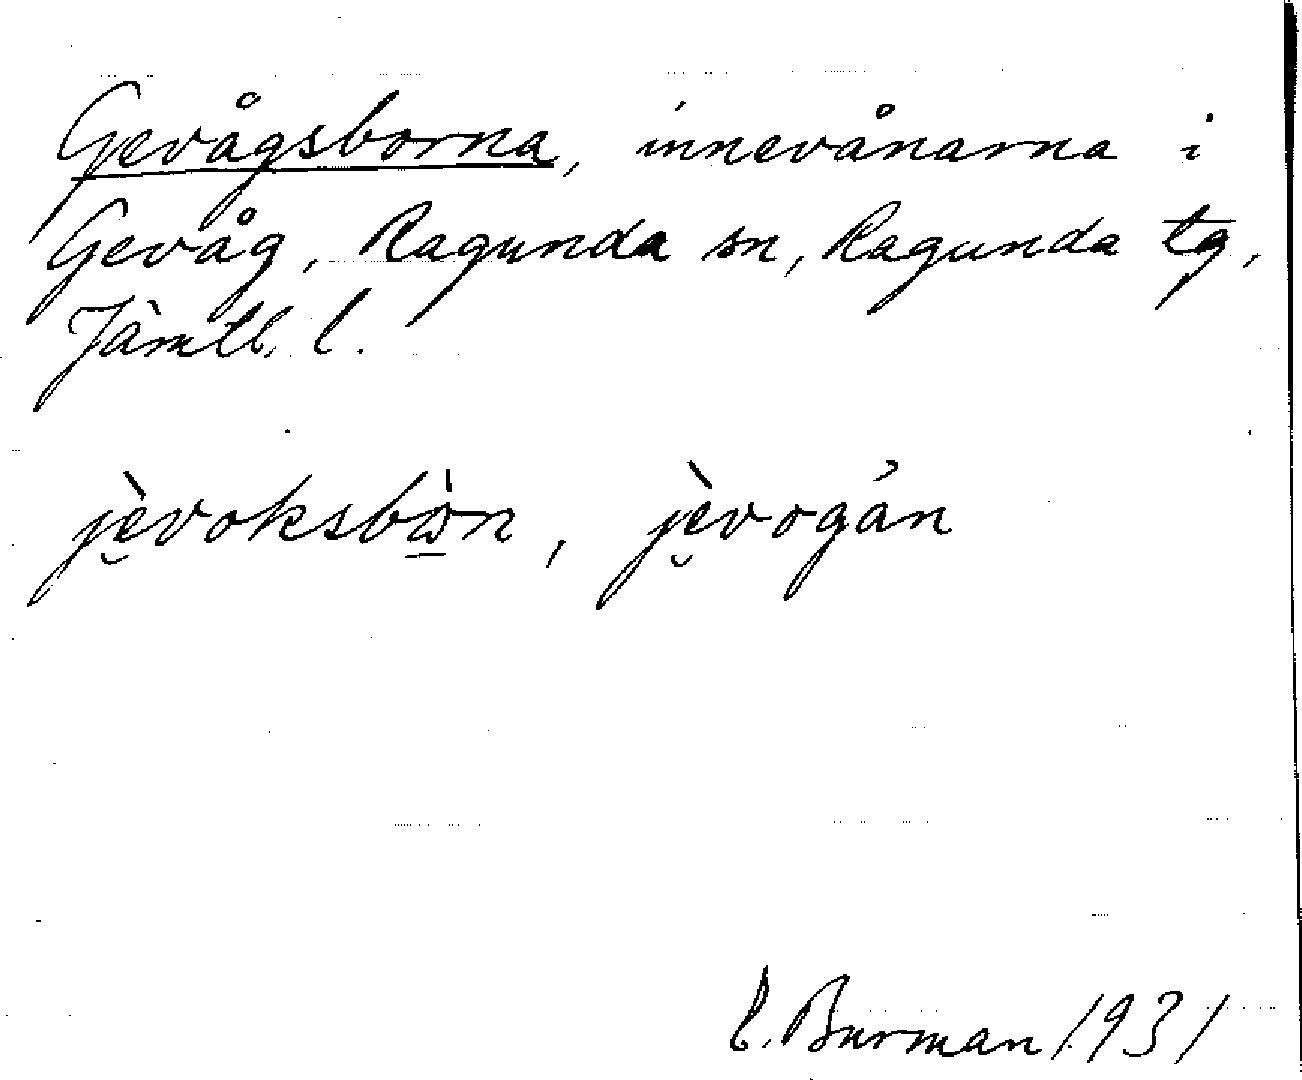 Gevågsborna, innevånarna i
Gevåg, Ragunda sn, Ragunda tg,
Jämtl. l.
jè̮voksbὼ̠n, jè̮vogán
E. Burman 1931